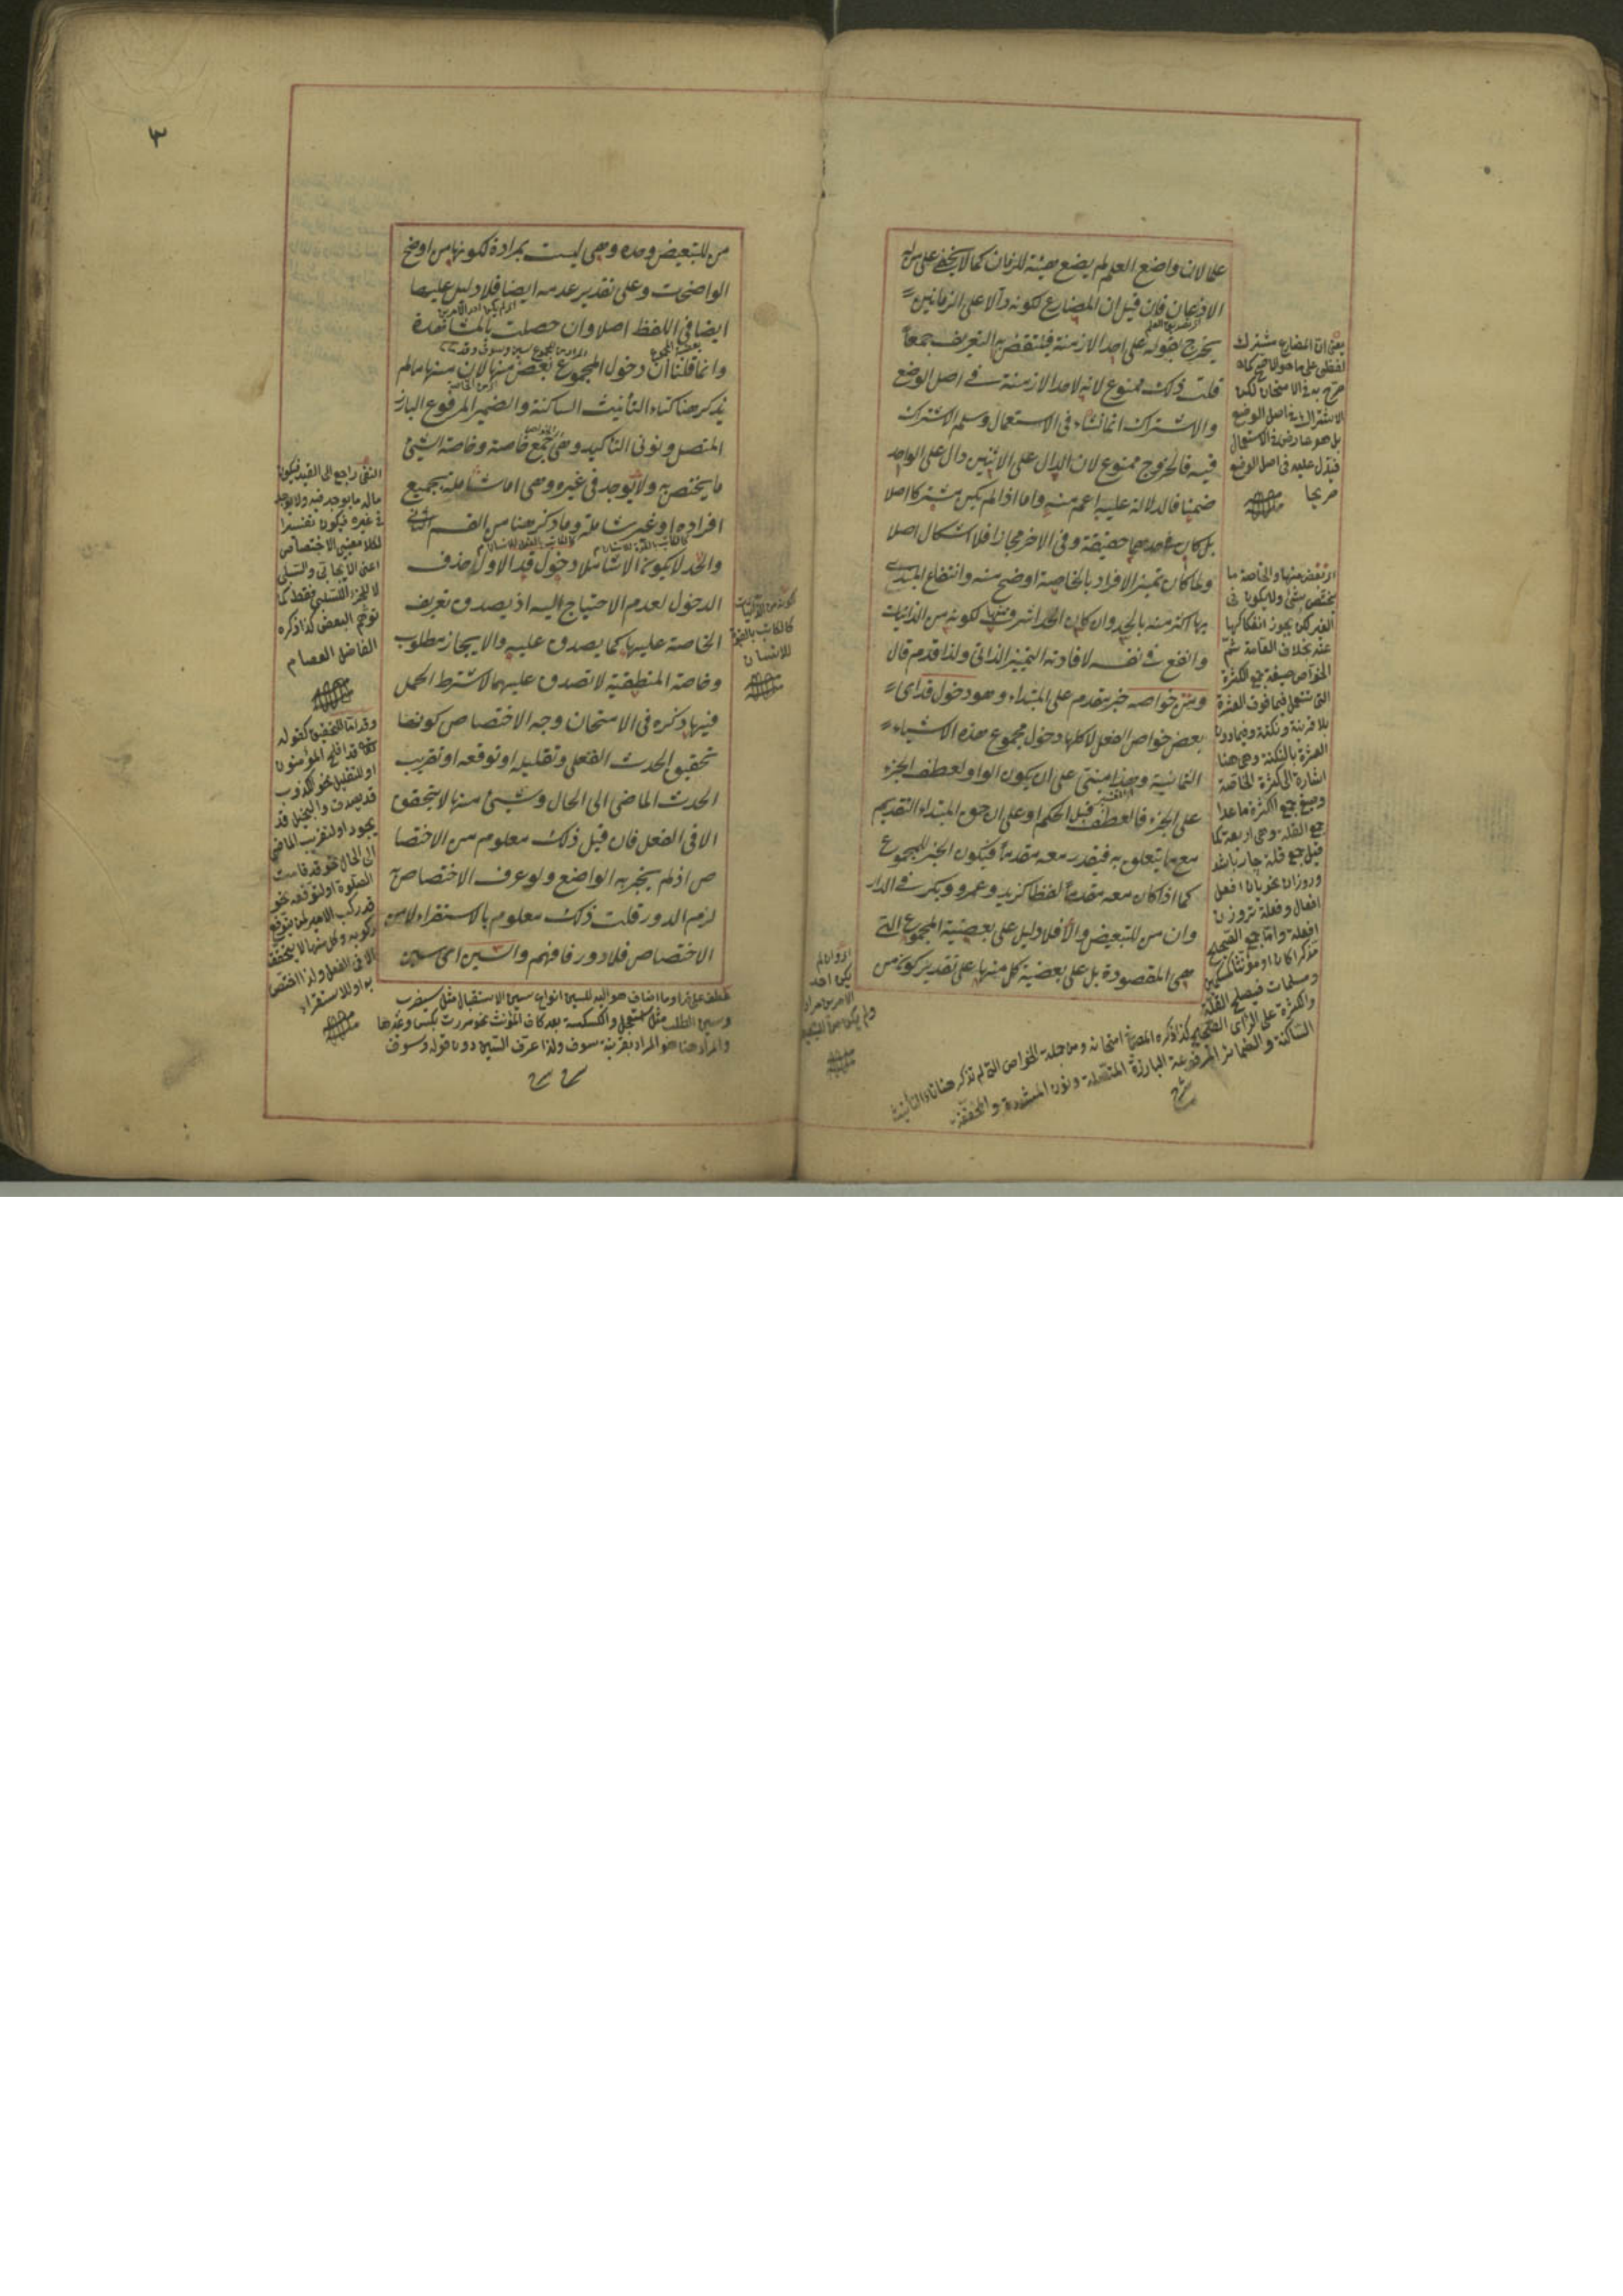 علما لان واضع العلم لم يضع هيئته للزمان كما لا يخفى على من له
الاذعان فان قيل ان المضارع لكونه دالا على الزمانين
يخرج بقوله على احد الازمنة فينتقض به التعريف جمعا
قلت ذلك ممنوع لانه لاحد الازمنة في اصل الوضع
والاشتراك انما نشاء في الاستعمال وسلم الاشتراك
فيه فالخروج ممنوع لان الدال على الاثنين دال على الواحد
ضمنا فالدلالة عليه اعم منه واما اذا لم يكن مشتركا اصلا
بل كان في احدهما حقيقة وفي الاخر مجازا فلا اشكال اصلا
ولما كان تميز الافراد بالخاصة اوضح منه وانتفاع المبتدى
بها اكثر منه بالحد وان كان الحد اشرف منها لكونه من الذاتيات
وانفع في نفسه لافادته التمييز الذاتى ولذا قدم قال
ومن خواصه خبر مقدم على المبتداء وهو دخول قد اى
بعض خواص الفعل لا كلها دخول مجموع هذه الاشياء
الثمانية وهذا مبنى على ان يكون الواو لعطف الجزء
على الجزء فالعطف قبل الحكم او على ان حق المبتداء التقديم
مع ما يتعلق به فيقدر معه مقدما فيكون الخبر للمجموع
كما اذا كان معه مقدما لفظا كزيد وعمرو وبكر في الدار
وان من للتبعيض والا فلا دليل على بعضية المجموع التى
هى المقصودة بل على بعضية كل منها على تقدير كونه من
يعنى ان المضارع مشترك
لفظى على ما هو الاصح كما
صرح به في الامتحان لكن
الاشتراك في اصل الوضع
بل هو عارض في الاستعمال
فيدل عليه في اصل الوضع
صريحا
او بعض منها والخاصة ما
يختص بشئ ولا يكون في
الغير لكن يجوز انفكاكها
عنه بخلاف العامة ثم
الخواص صيغة جمع الكثرة
التى تستعمل فيما فوق العشرة
بلا قرينة ونكتة وفيما دون
العشرة بالنكتة وهى هنا
اشارة الى كثرة الخاصة
وصيغ جمع الكثرة ما عدا
جمع القلة وهى اربعة كما
افعلة واما جمع الصحيح
مذكرا كان او مؤنثا كمسلمين
ومسلمات فيصلح القلة
والكثرة على الراى الصحيح كذا ذكره المص في امتحانه ومن جملة الخواص التى لم تذكر هنا تاء التأنيث
الساكنة والضمائر المرفوعة البارزة المتصلة ونون المشددة والمخففة
اى وان لم
يكن احد
الامرين مراد
من للتبعيض وحده وهى ليست بمرادة لكونها من اوضح
الواضحات وعلى تقدير عدمه ايضا فلا دليل عليها
ايضا في اللفظ اصلا وان حصلت بالمشاهدة
وانما قلنا ان دخول المجموع بعض منها لان منها ما لم
يذكر هنا كتاء التأنيث الساكنة والضمير المرفوع البارز
المتصل ونونى التأكيد وهى جمع خاصة وخاصة الشئ
ما يختص به ولا يوجد في غيره وهى اما شاملة لجميع
افراده او غير شاملة وما ذكر هنا من القسم الثانى
والحد لا يكون الا شاملا دخول قد الاول حذف
الدخول لعدم الاحتياج اليه اذ يصدق تعريف
الخاصة عليها كما يصدق عليه والايجاز مطلوب
وخاصة المنطقية لا تصدق عليهما لاشتراط الحمل
فيها ذكره في الامتحان وجه الاختصاص كونها
تحقيق الحدث الفعلى وتقليله او توقعه او تقريب
الحدث الماضى الى الحال وشئ منها لا يتحقق
الا في الفعل فان قيل ذلك معلوم من الاختصا
ص اذ لم يخبر به الواضع ولو عرف الاختصاص
لزم الدور قلت ذلك معلوم بالاستقراء لا من
الاختصاص فلا دور فافهم والسين اى سين
عطف على قد اوما اضاف هو اليه للسين انواع سين الاستقبال مثل سيضرب
وسين الطلب مثل استعجل والكسكسة بعد كاف المؤنث نحو مررت بكس وغيرها
والمراد هنا هو المراد بقرينة سوف ولذا عرف السين دون قوله وسوف
كالكاتب بالقوة
للانسان
النفى راجع الى القيد فيكون
ماله ما يوجد فيه ولا يوجد
في غيره فيكون تفسيرا
لكلا معنيى الاختصاص
اعنى الايجابى والسلبى
لا للجزء السلبى فقط كما
توهم البعض كذا ذكره
الفاضل العصام
وقد اما للتحقيق كقوله
تعالى قد افلح المؤمنون
او للتقليل نحو الكذوب
قد يصدق والبخيل قد
يجود او لتقريب الماضى
الى الحال نحو قد قامت
الصلوة او لتوقعه نحو
قد ركب الامير لمن يتوقع
ركوبه وكل منها لا يتحقق
الا في الفعل ولذا اختص
به او للاستقراء
٣